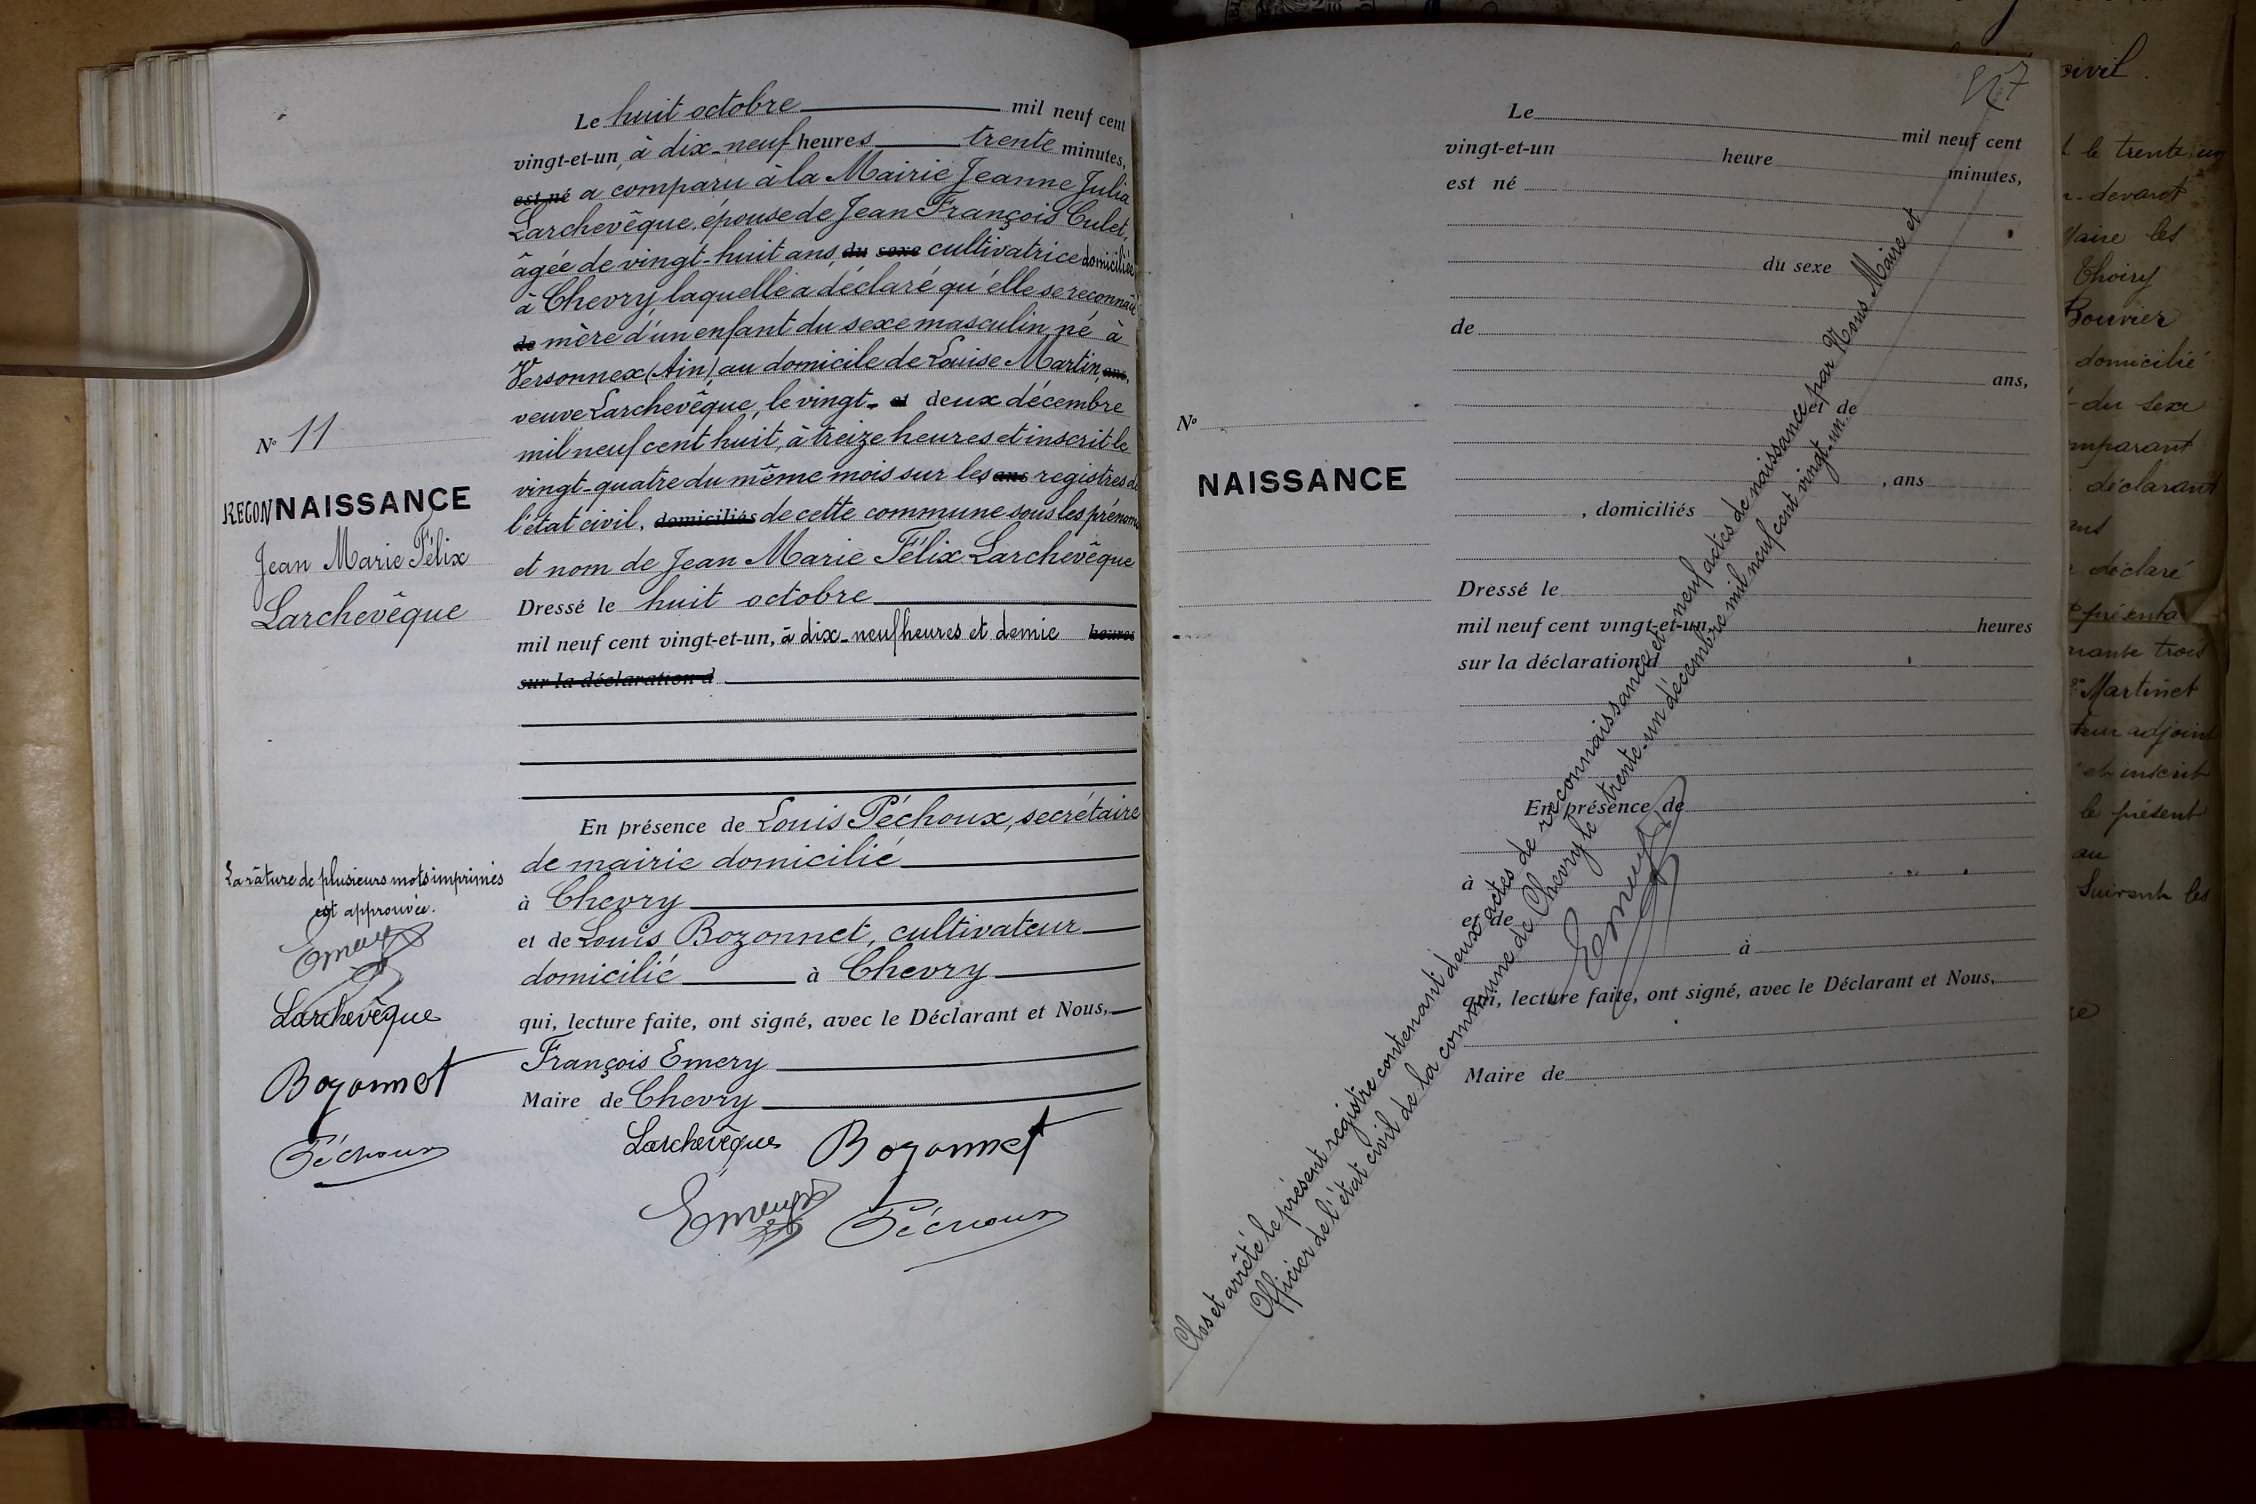 Le huit octobre mil neuf cent
vingt-et-un, à dix-neuf heures trente minutes,
est né a comparu à la Mairie Jeanne Julia
Larchevêque, épouse de Jean François Culet,
âgée de vingt-huit ans, du sexe cultivatrice domiciliée
à Chevry, laquelle a déclaré qu'elle se reconnaît
de mère d'un enfant du sexe masculin, né à
Versonnex (Ain), au domicile de Louise Martin, ans,
veuve Larchevêque, le vingt- et deux décembre
mil neuf cent huit, à treize heures et inscrit le
vingt-quatre du même mois sur les ans registres de
l'état civil, domiciliés de cette commune sous les prénoms
et nom de Jean Marie Félix Larchevêque
Dressé le huit octobre
mil neuf cent vingt-et-un, à dix-neuf heures et demie heures
sur la déclaration d
En présence de Louis Péchoux, secrétaire
de mairie domicilié
à Chevry
et de Louis Bozonnet, cultivateur
domicilié à Chevry
qui, lecture faite, ont signé, avec le Déclarant et Nous,
François Emery
Maire de Chevry
Larchevêque Bozonnet
Emery Péchoux
No 11
RECONNAISSANCE
Jean Marie Félix
Larchevêque
La râture de plusieurs mots imprimés
est approuvée.
Emery
Larchevêque
Bozonnet
Péchoux
Le mil neuf cent
vingt-et-un heure minutes,
est né
du sexe
de
ans,
et de
No
NAISSANCE
, ans
, domiciliés
Dressé le
mil neuf cent vingt-et-un heures
sur la déclaration d
En présence de
à
et de
à
qui, lecture faite, ont signé, avec le Déclarant et Nous,
Maire de
Clos et arrêté le présent registre contenant deux actes de reconnaissance et neuf actes de naissance, par Nous Maire et
Officier de l'état civil de la commune de Chevry le trente-un décembre mil neuf cent vingt-un
Emery
civil.
le trente un
devant
Maire les
Thoiry
Bouvier
domicilié
du sexe
comparant
déclarant
ans
déclaré
présenta
trois
Martinet
adjoint
et inscrit
le présent
au
Suivent les